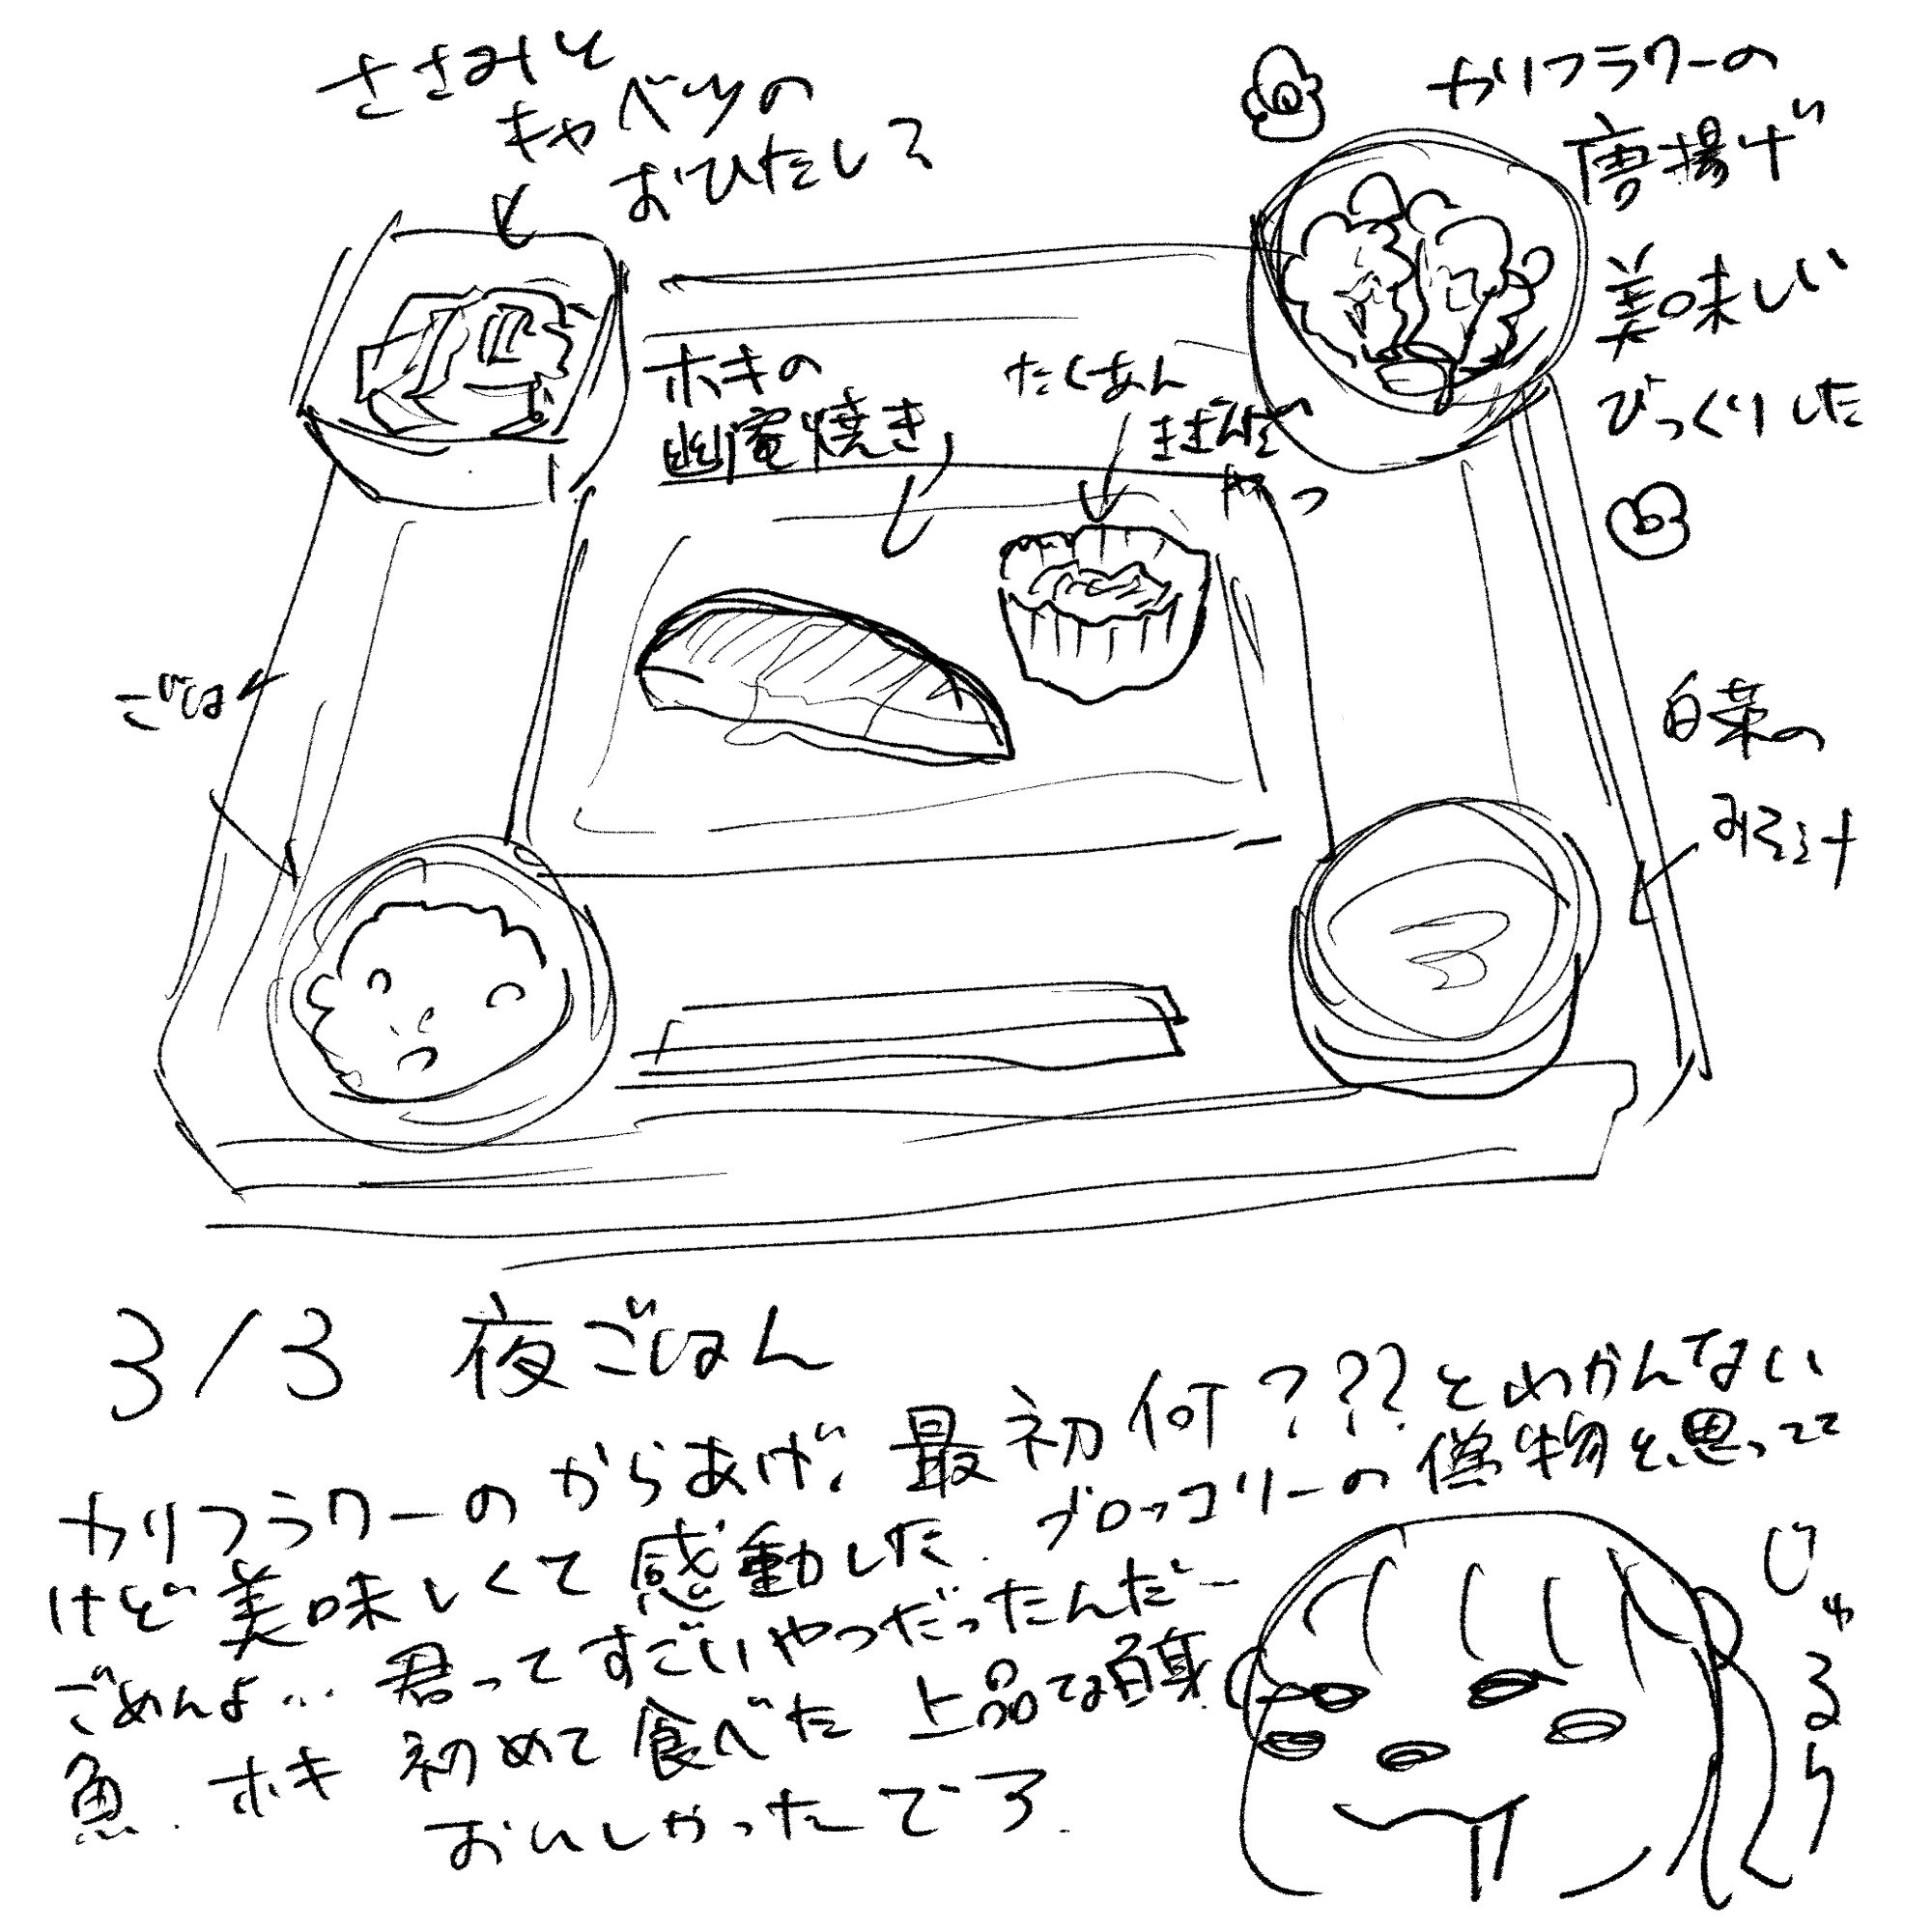 ささみと
キャベツの
おひたし？
カリフラワーの
唐揚げ
美味しい
びっくりした
ホキの
幽庵焼き
たくあん
まぜた
やつ
ごは
白菜の
みそ汁
3/3 夜ごはん
カリフラワーのからあげ、最初何???とわかんない
けど美味しくて感動した。ブロッコリーの偽物と思ってて
ごめんよ… 君ってすごいやつだったんだー
魚、ホキ 初めて食べた 上品な白身
おいしかったでろ
じゅるり